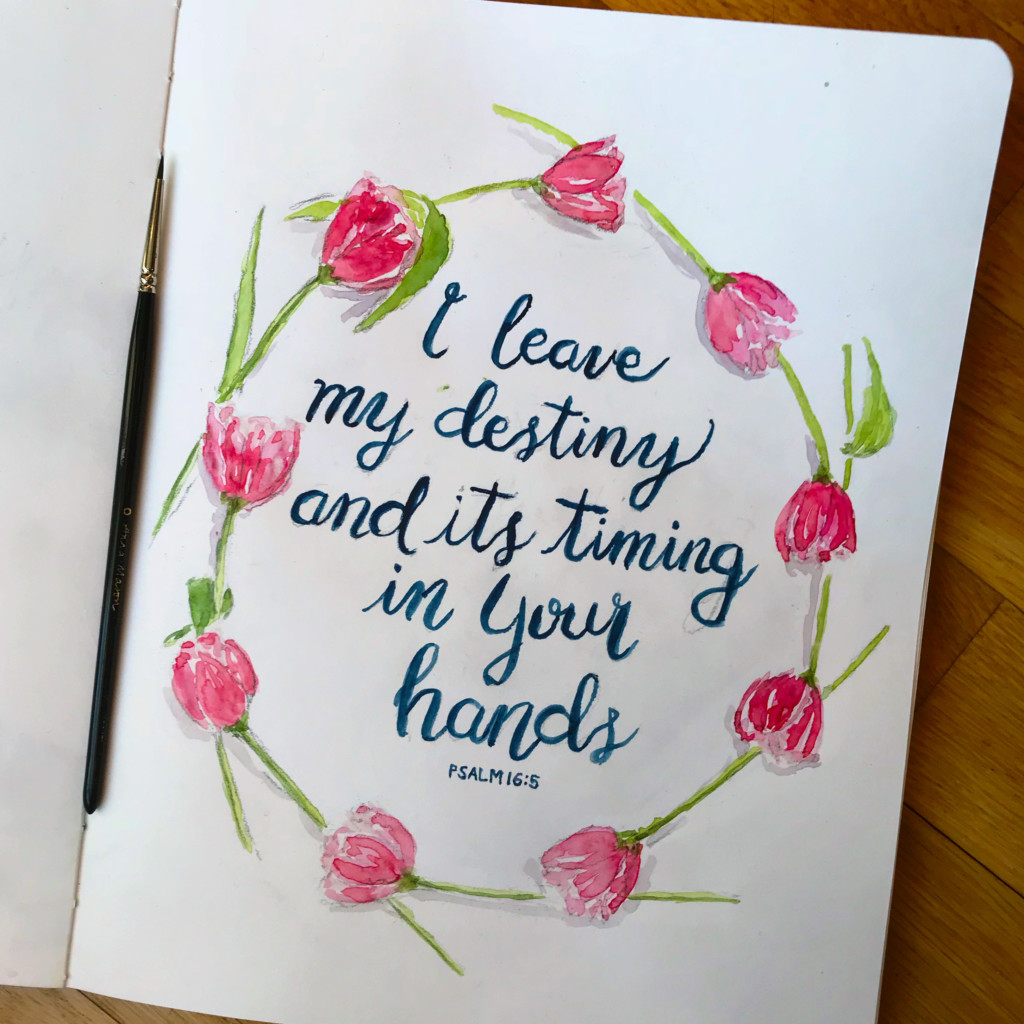 I leave
my destiny
and its timing
in Your
hands
PSALM 16:5